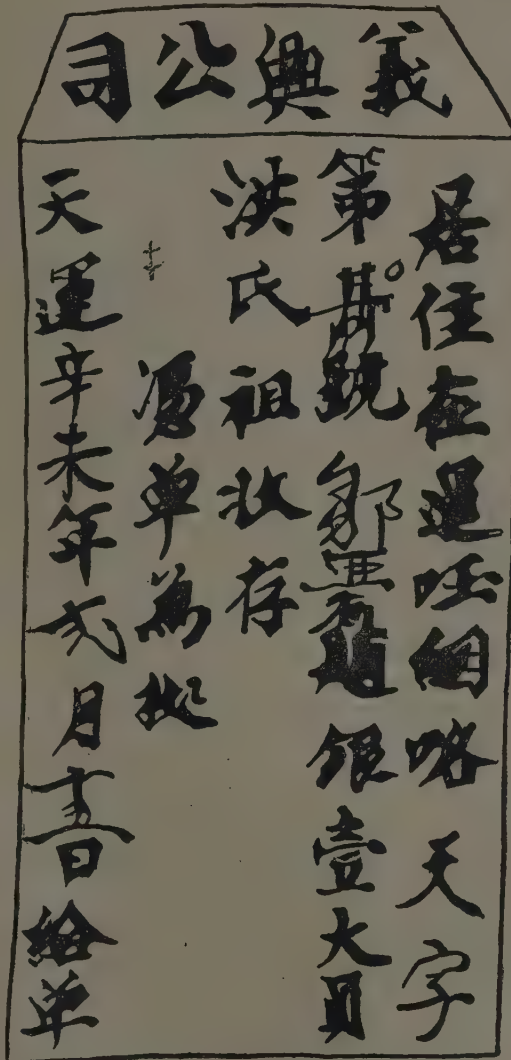 義興公司
居住在暹呸細咯天字
第號鄒亞銀壹大員
洪氏祖收存
憑單為挑
天運辛未年弍月日給单